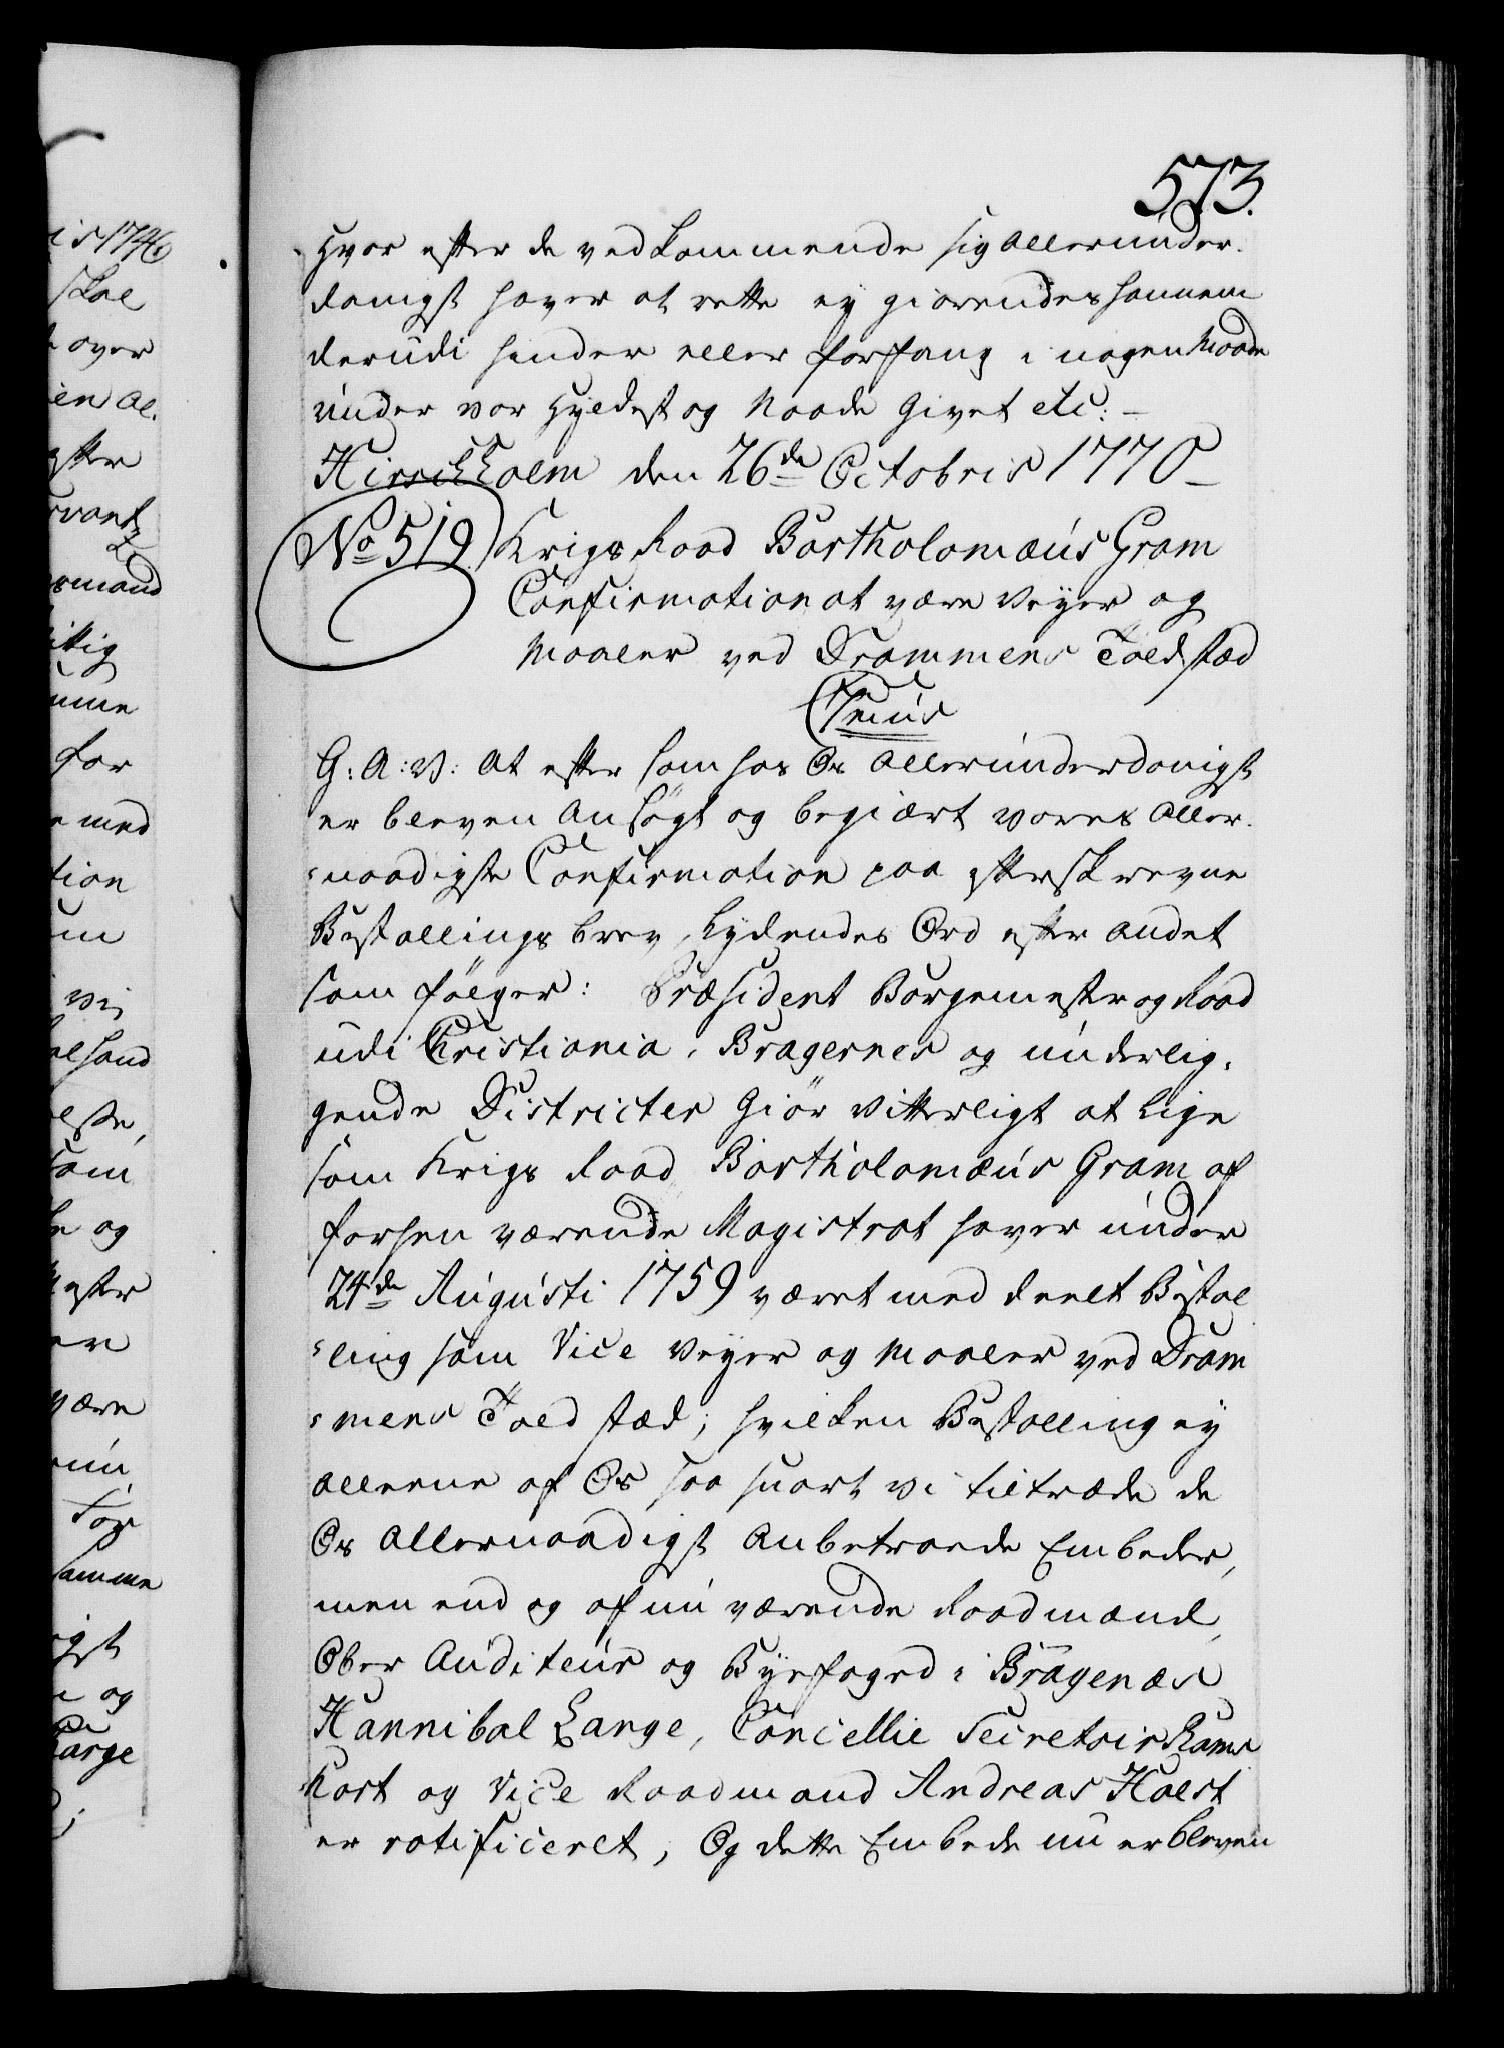 573.
Hvor efter de vedkommende sig allerunder-
danigst haver at rette ey giörendes hannem
derudi hinder eller forfang i nogen Maade
under vor Hyldest og Naade Givet etc: -
Hirschholm den 26de Octobris 1770 -
No 519. Krigs Raad Bartholomæus Gram
Confirmation at være Veyer og
Maaler ved Drammens Toldstæd
G: A: V: At efter som hos Os Allerunderdanigst
er bleven Ansögt og begiært vores Aller-
naadigste Confirmation paa efterskrevne
Bestallings brev, Lydendes Ord efter andet
som fölger: Præsident Borgemestr og Raad
udi Christiania, Bragernes og underlig-
gende Districter Giör Vitterligt at Lige
som Krigs Raad Bartholomæus Gram af
forhen værende Magistrat haver under
24de Augusti 1759 været med deelt Bestal
ling som Vice Veyer og Maaler ved Dram
mens Told stæd; hvilken Bestalling ey
alleene af Os saa snart vi tiltræde de
Os Allernaadigst Anbetroede Embeder,
men end og af nu værende Raadmænd,
Ober Auditeur og Byefoged i Bragenæs
Hannibal Lange, Cancellie Secretair Rams
hart og Vice Raadmand Andreas Holst
er ratificeret, Og dette Embede nu er bleven
is 1746
skal
over
en al.
efter
mand
umme
for
med
tion
um
vi
som
og
ester
er
være
Samme
igst
og
Lange